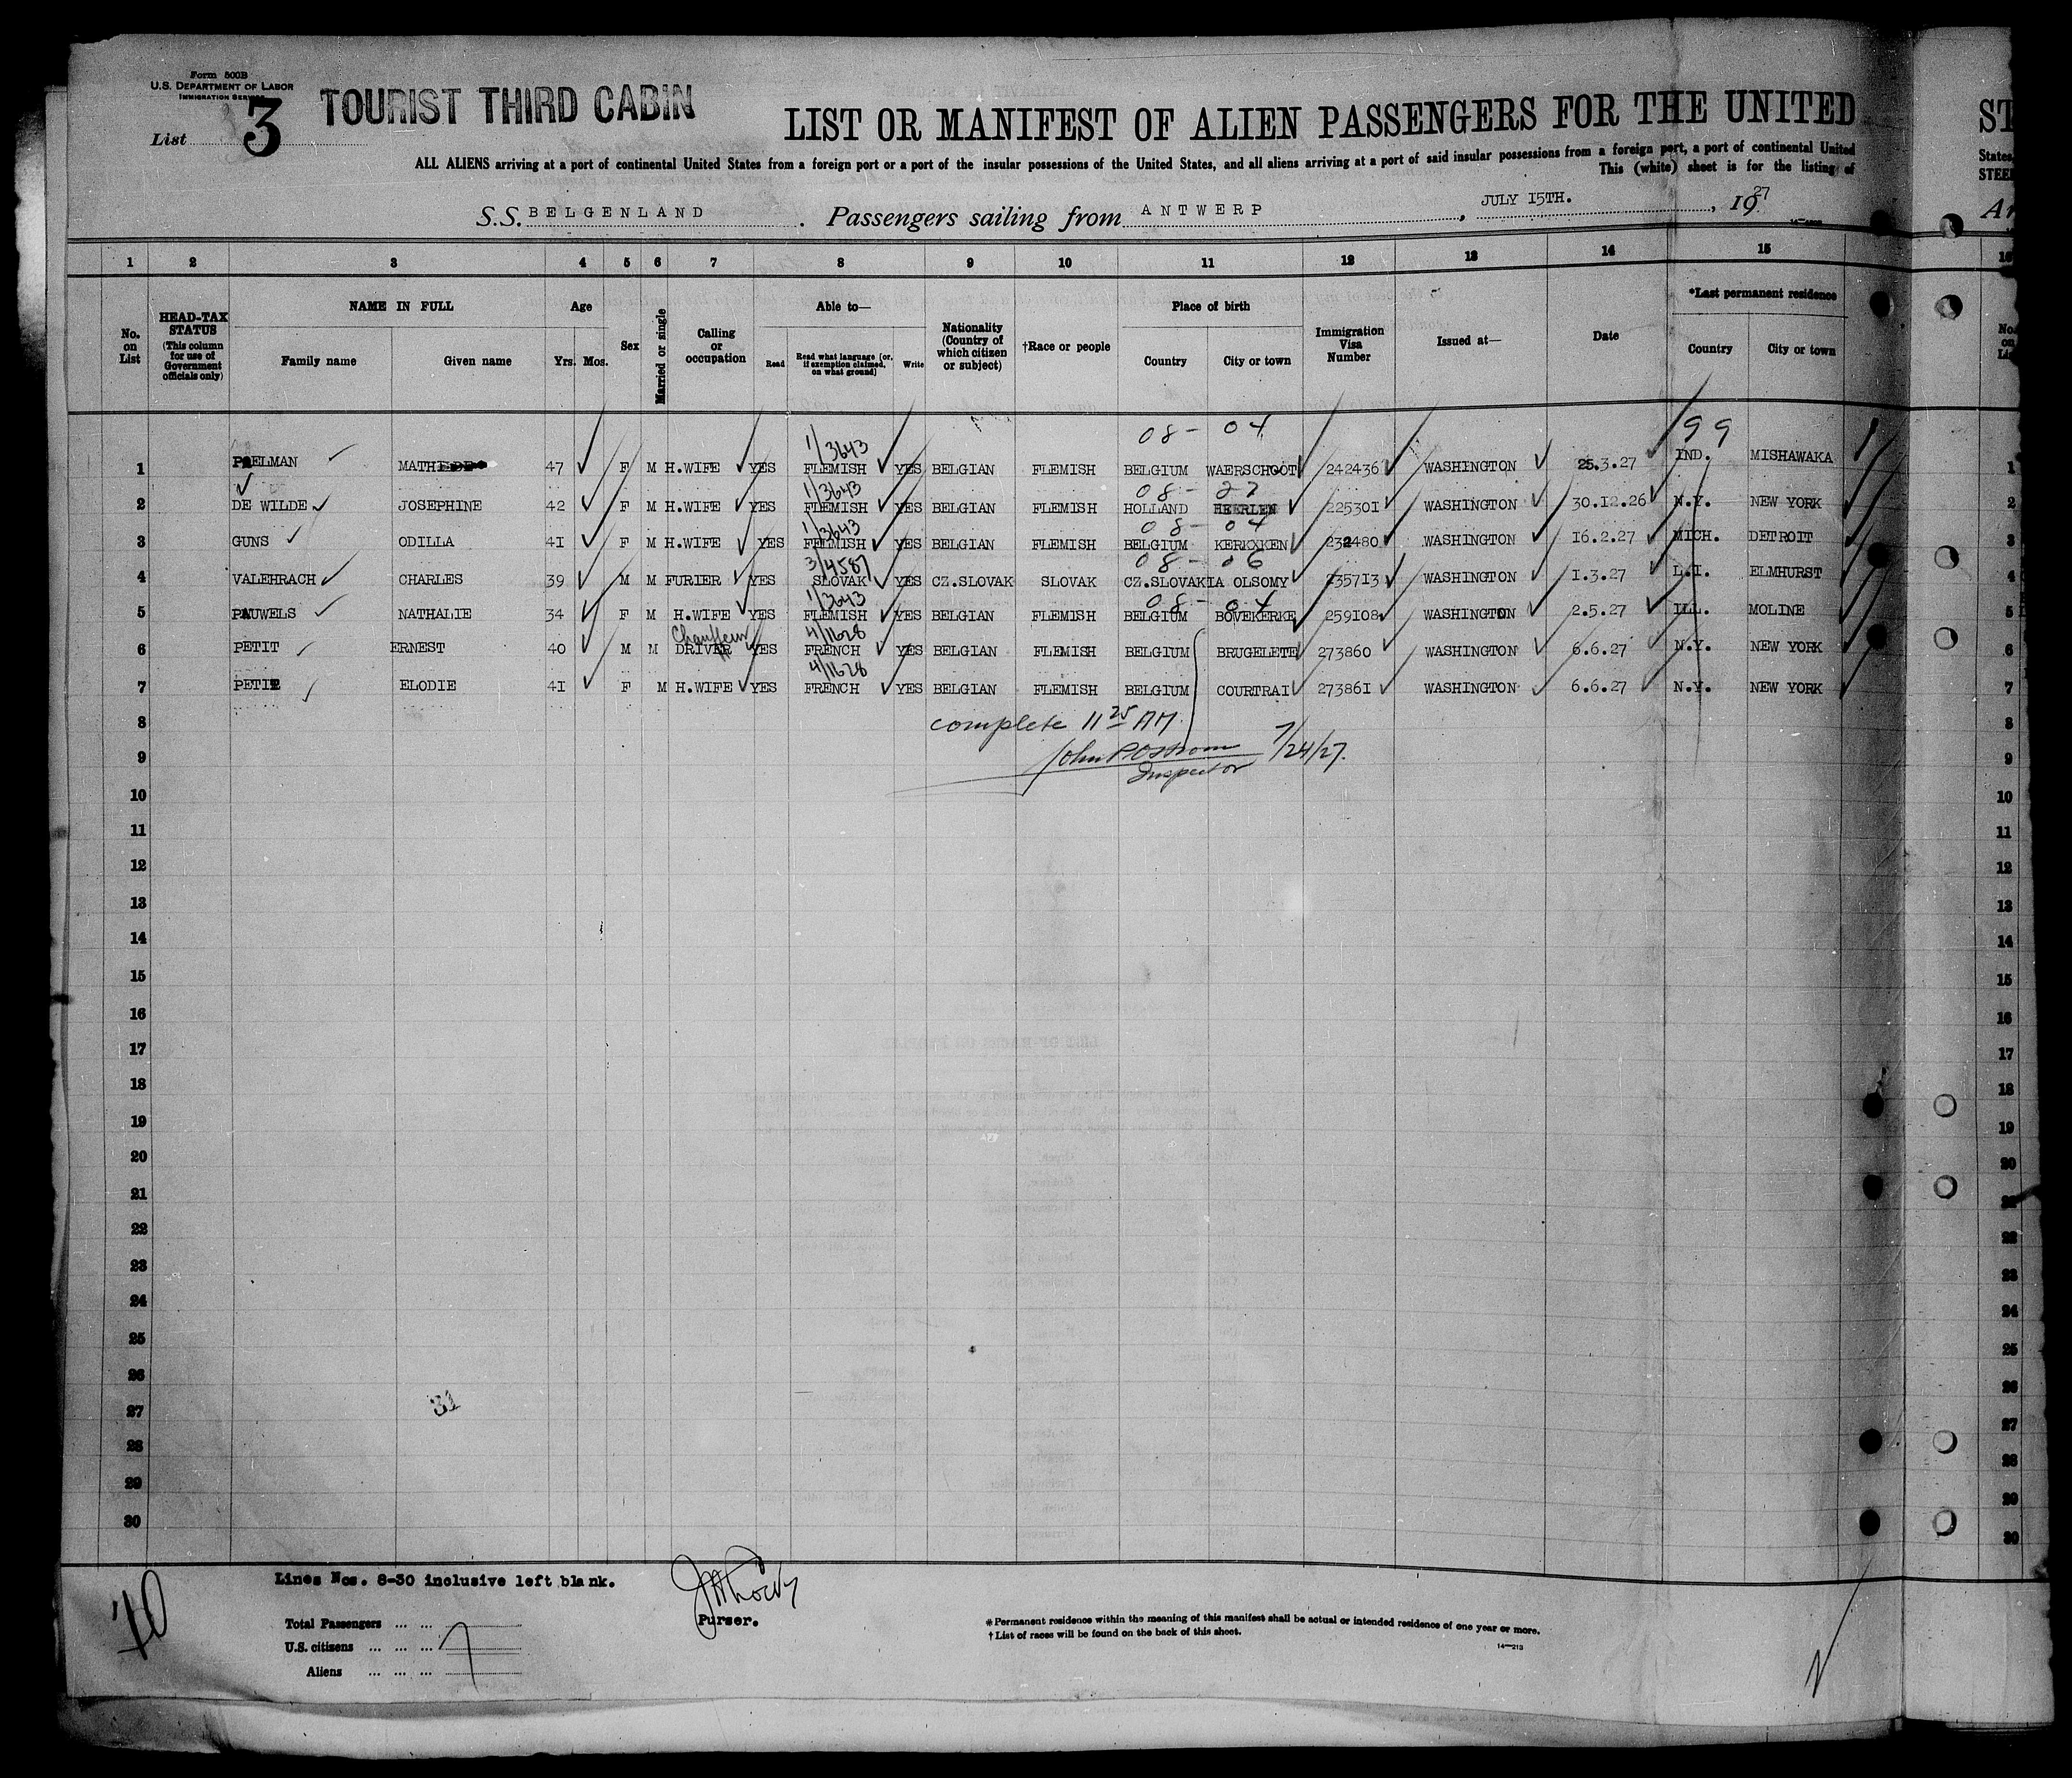 Form 500B
U.S. DEPARTMENT OF LABOR
IMMIGRATION SERVICE
List 3
TOURIST THIRD CABIN
LIST OR MANIFEST OF ALIEN PASSENGERS FOR THE UNITED
ST
ALL ALIENS arriving at a port of continental United States from a foreign port or a port of the insular possessions of the United States, and all aliens arriving at a port of said insular possessions from a foreign port, a port of continental United
States,
This (white) sheet is for the listing of
STEE
S.S. BELGENLAND. Passengers sailing from ANTWERP, JULY 15TH., 1927
Ar
1 2 3 4 5 6 7 8 9 10 11 12 13 14 15 16
No. on List
HEAD-TAX STATUS (This column for use of Government officials only)
NAME IN FULL
Family name Given name
Age
Yrs. Mos.
Sex
Married or single
Calling or occupation
Able to—
Read Read what language [or, if exemption claimed, on what ground] Write
Nationality (Country of which citizen or subject)
†Race or people
Place of birth
Country City or town
Immigration Visa Number
Issued at—
Date
*Last permanent residence
Country City or town
1/3643 08- 04 199
1 ELMAN MATH 47 F M H.WIFE YES FLEMISH YES BELGIAN FLEMISH BELGIUM WAERSCHOOT 242436 WASHINGTON 25.3.27 IND. MISHAWAKA 1
1/3643 08- 27
2 DE WILDE JOSEPHINE 42 F M H.WIFE YES FLEMISH YES BELGIAN FLEMISH HOLLAND HEERLEN 225301 WASHINGTON 30.12.26 N.Y. NEW YORK 2
1/3643 08- 04
3 GUNS ODILLA 41 F M H.WIFE YES FLEMISH YES BELGIAN FLEMISH BELGIUM KERKXKEN 232480 WASHINGTON 16.2.27 MICH. DETROIT 3
3/4587 08- 06
4 VALEHRACH CHARLES 39 M M FURIER YES SLOVAK YES CZ.SLOVAK SLOVAK CZ.SLOVAKIA OLSOMY 235713 WASHINGTON 1.3.27 L.I. ELMHURST 4
1/3643 08- 04
5 PAUWELS NATHALIE 34 F M H.WIFE YES FLEMISH YES BELGIAN FLEMISH BELGIUM BOVEKERKE 259108 WASHINGTON 2.5.27 ILL. MOLINE 5
Chauffeur 4/11628
6 PETIT ERNEST 40 M M DRIVER YES FRENCH YES BELGIAN FLEMISH BELGIUM BRUGELETE 273860 WASHINGTON 6.6.27 N.Y. NEW YORK 6
4/11628
7 PETIT ELODIE 41 F M H.WIFE YES FRENCH YES BELGIAN FLEMISH BELGIUM COURTRAI 273861 WASHINGTON 6.6.27 N.Y. NEW YORK 7
8 complete 11 25 AM. 8
9 John P Ostrom 7/24/27. 9
Inspector
10 10
11 11
12 12
13 13
14 14
15 15
16 16
17 17
18 18
19 19
20 20
21 21
22 22
23 23
24 24
25 25
26 26
27 31 27
28 28
29 29
30 30
Lines Nos. 8-30 inclusive left blank.
70
Purser.
Total Passengers ... ...
U.S. citizens ... ... ... 7
Aliens ... ... ...
*Permanent residence within the meaning of this manifest shall be actual or intended residence of one year or more.
†List of races will be found on the back of this sheet.
14—213